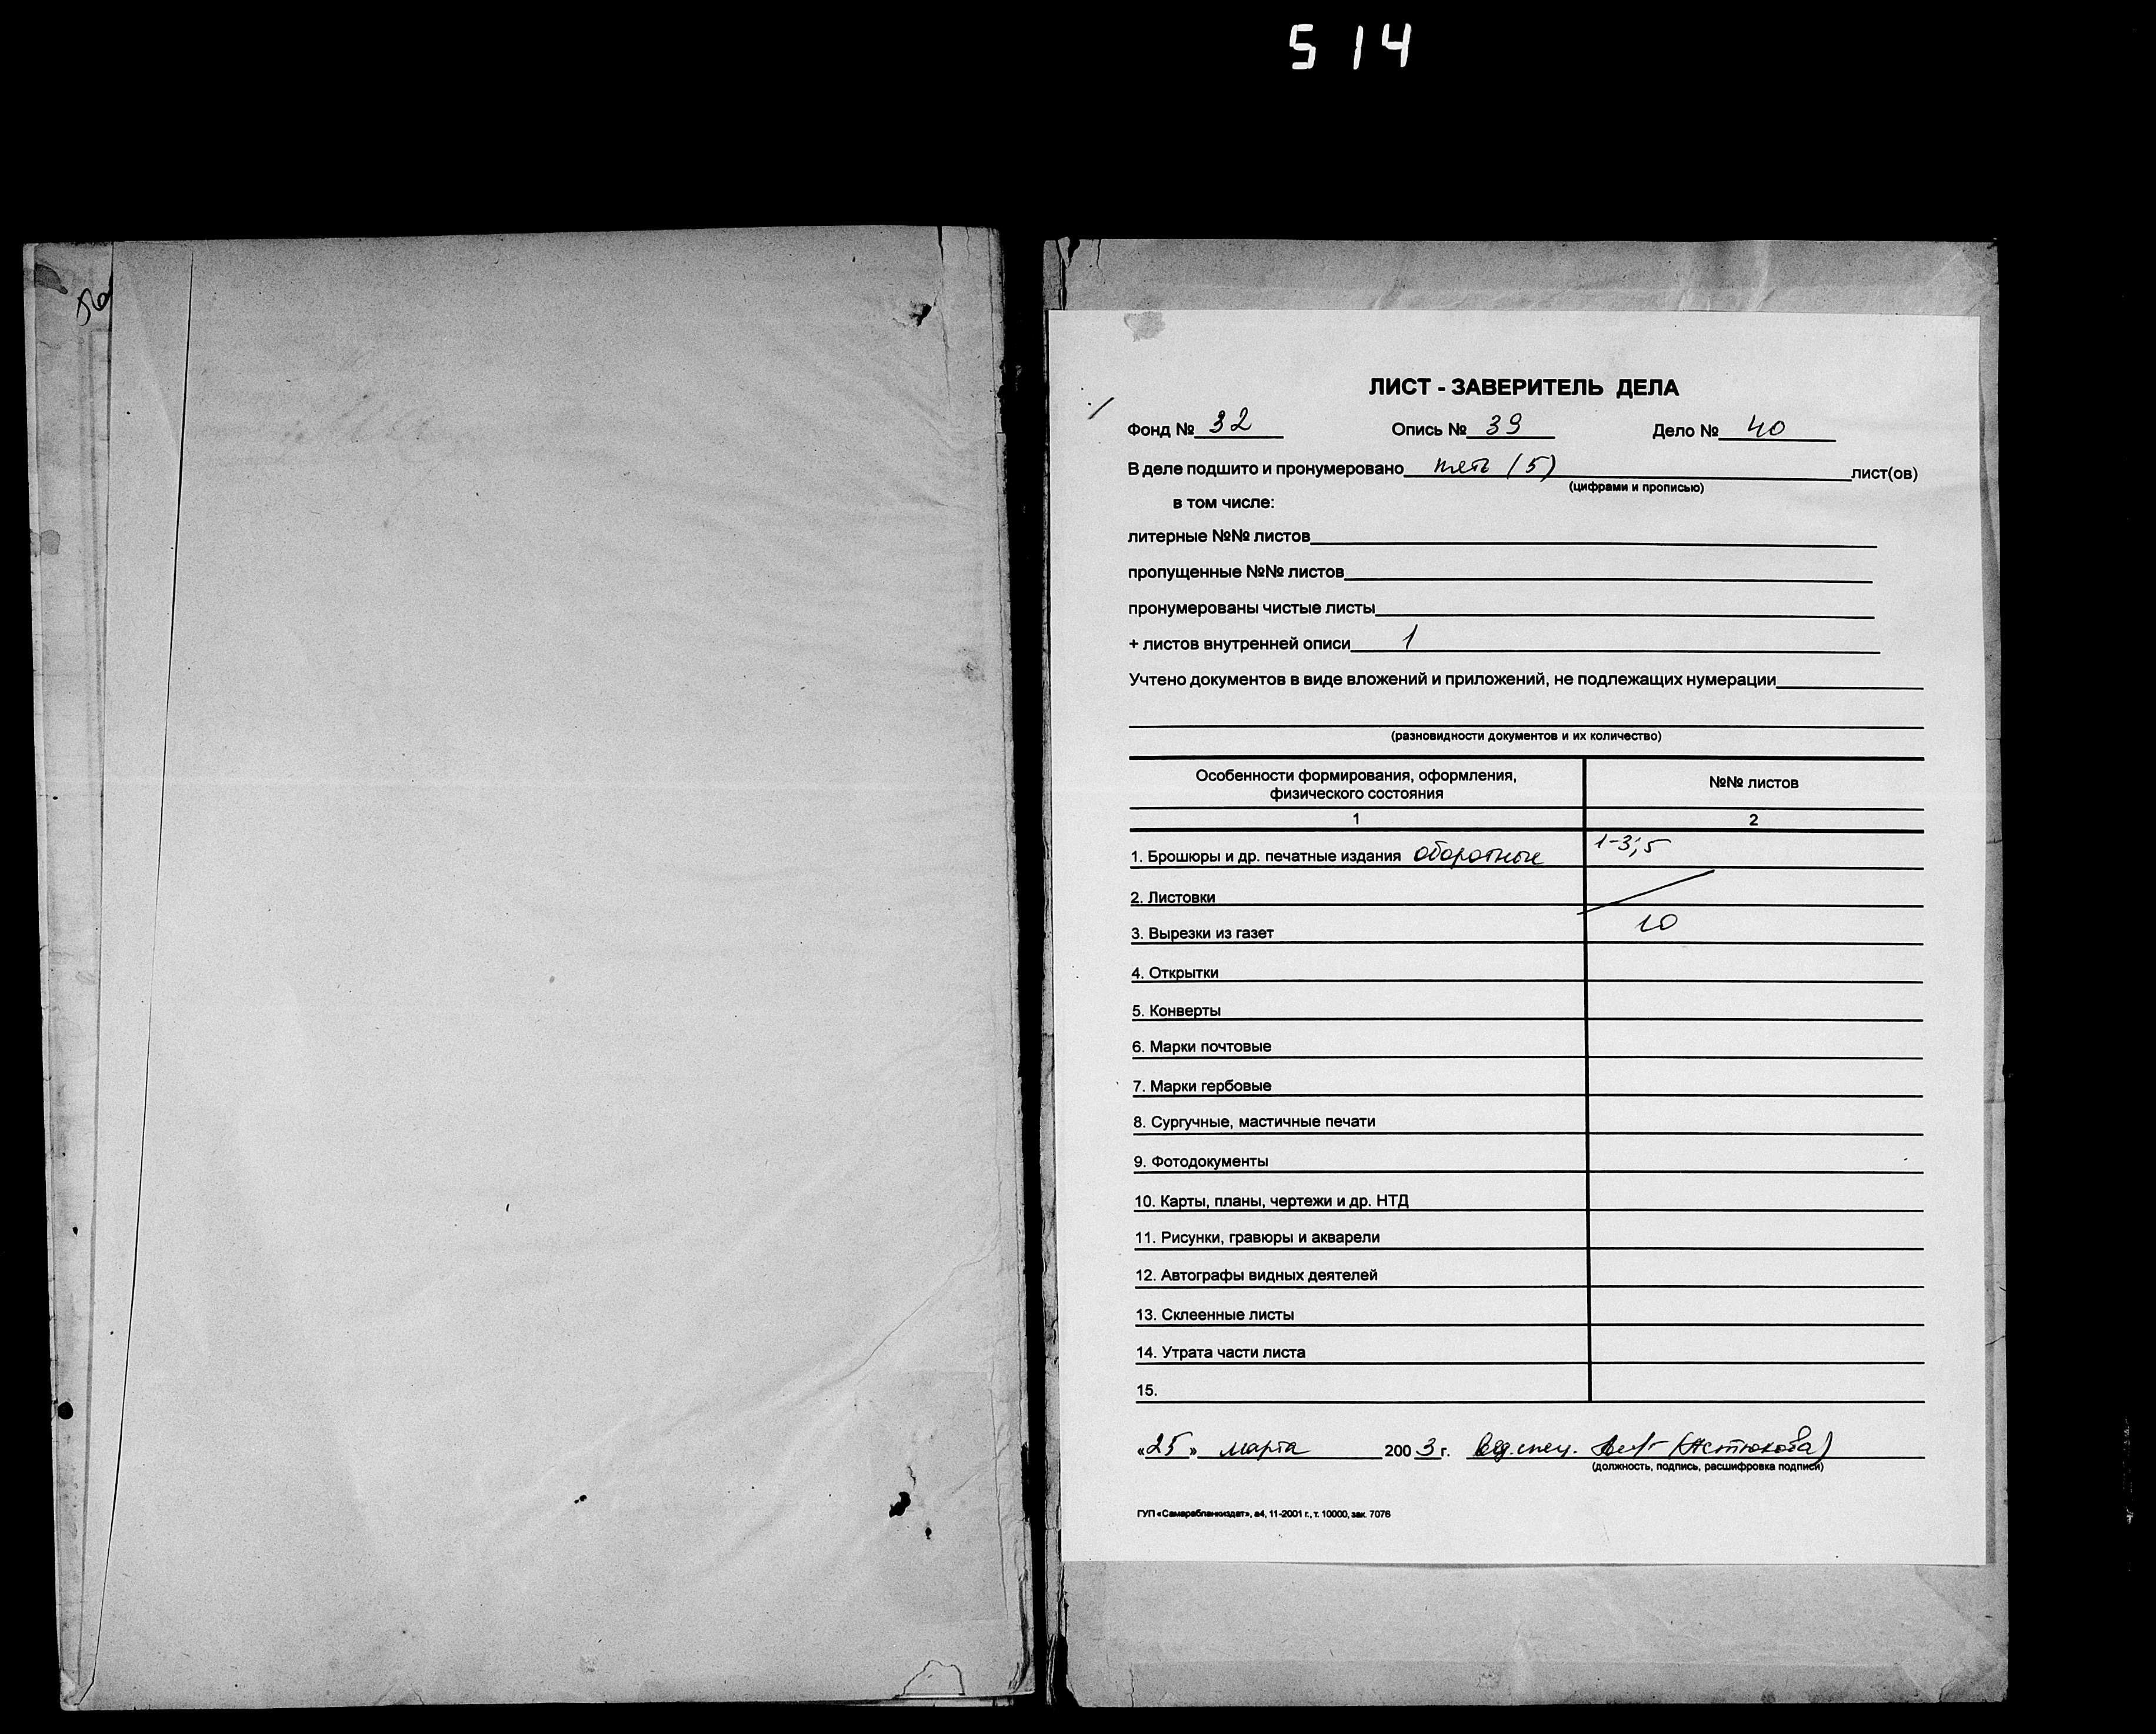 514
5б
ЛИСТ - ЗАВЕРИТЕЛЬ ДЕЛА
Фонд № 32 Опись № 39 Дело № 40
В деле подшито и пронумеровано пять (5) лист(ов)
(цифрами и прописью)
в том числе:
литерные №№ листов
пропущенные №№ листов
пронумерованы чистые листы
+ листов внутренней описи 1
Учтено документов в виде вложений и приложений, не подлежащих нумерации
(разновидности документов и их количество)
Особенности формирования, оформления, №№ листов
физического состояния
1 2
1. Брошюры и др. печатные издания оборотные 1-3; 5
2. Листовки
3. Вырезки из газет 10
4. Открытки
5. Конверты
6. Марки почтовые
7. Марки гербовые
8. Сургучные, мастичные печати
9. Фотодокументы
10. Карты, планы, чертежи и др. НТД
11. Рисунки, гравюры и акварели
12. Автографы видных деятелей
13. Склеенные листы
14. Утрата части листа
15.
«25» марта 2003 г. вед. спец.
(должность, подпись, расшифровка подписи)
ГУП «Самарабланкиздат», а4, 11-2001 г., т. 10000, зак. 7076